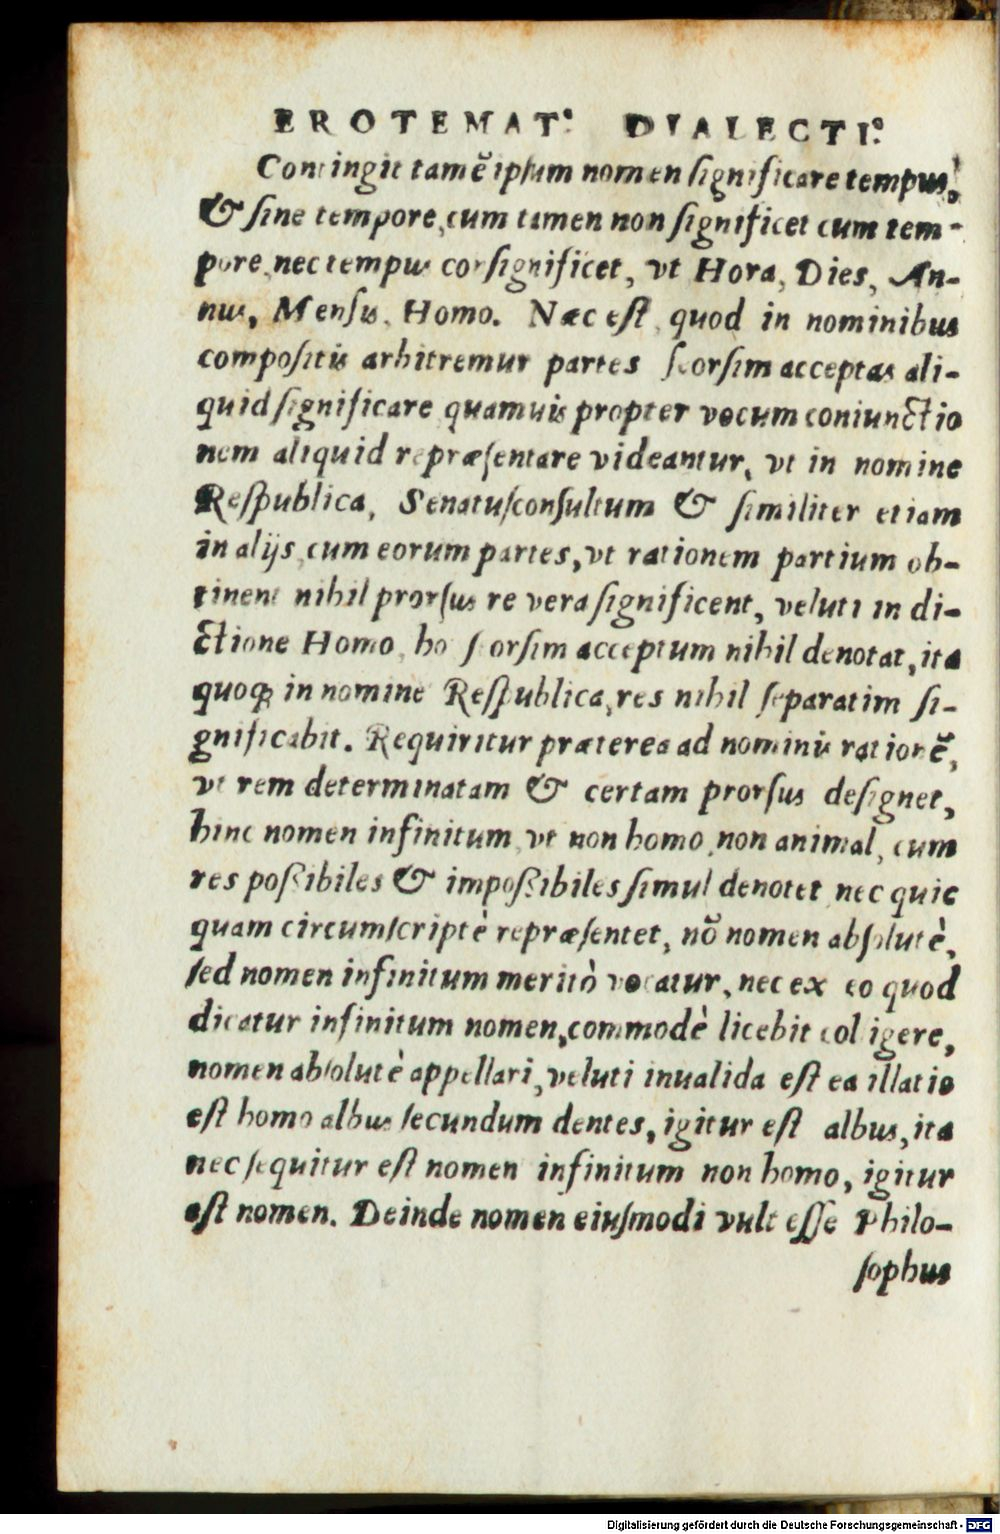 EROTEMAT. DIALECTI.
Contingit tamẽ ipſum nomen ſignificare tempus,
& ſine tempore, cum tamen non ſignificet cum tem-
pore, nec tempus conſignificet, vt Hora, Dies, An-
nus, Menſis, Homo. Nęc eſt, quod in nominibus
compoſitis arbitremur partes ſeorſim acceptas ali-
quid ſignificare quamuis propter vocum coniunctio
nem aliquid repræſentare videantur, vt in nomine
Reſpublica, Senatuſconſultum & ſimiliter etiam
in alijs, cum eorum partes, vt rationem partium ob-
tinent nihil prorſus re vera ſignificent, veluti in di-
ctione Homo, ho ſeorſim acceptum nihil denotat, ita
quoq; in nomine Reſpublica, res nihil ſeparatim ſi-
gnificabit. Requiritur præterea ad nominis rationẽ,
vt rem determinatam & certam prorſus deſignet,
hinc nomen infinitum, vt non homo, non animal, cum
res poſsibiles & impoſsibiles ſimul denotet nec quic
quam circumſcriptè repræſentet, nõ nomen abſolutè,
ſed nomen infinitum meritò vocatur, nec ex eo quod
dicatur infinitum nomen, commodè licebit colligere,
nomen abſolutè appellari, veluti inualida eſt ea illatio
eſt homo albus ſecundum dentes, igitur eſt albus, ita
nec ſequitur eſt nomen infinitum non homo, igitur
eſt nomen. Deinde nomen eiuſmodi vult eſſe Philo-
ſophus
Digitalisierung gefördert durch die Deutsche Forschungsgemeinschaft - DFG